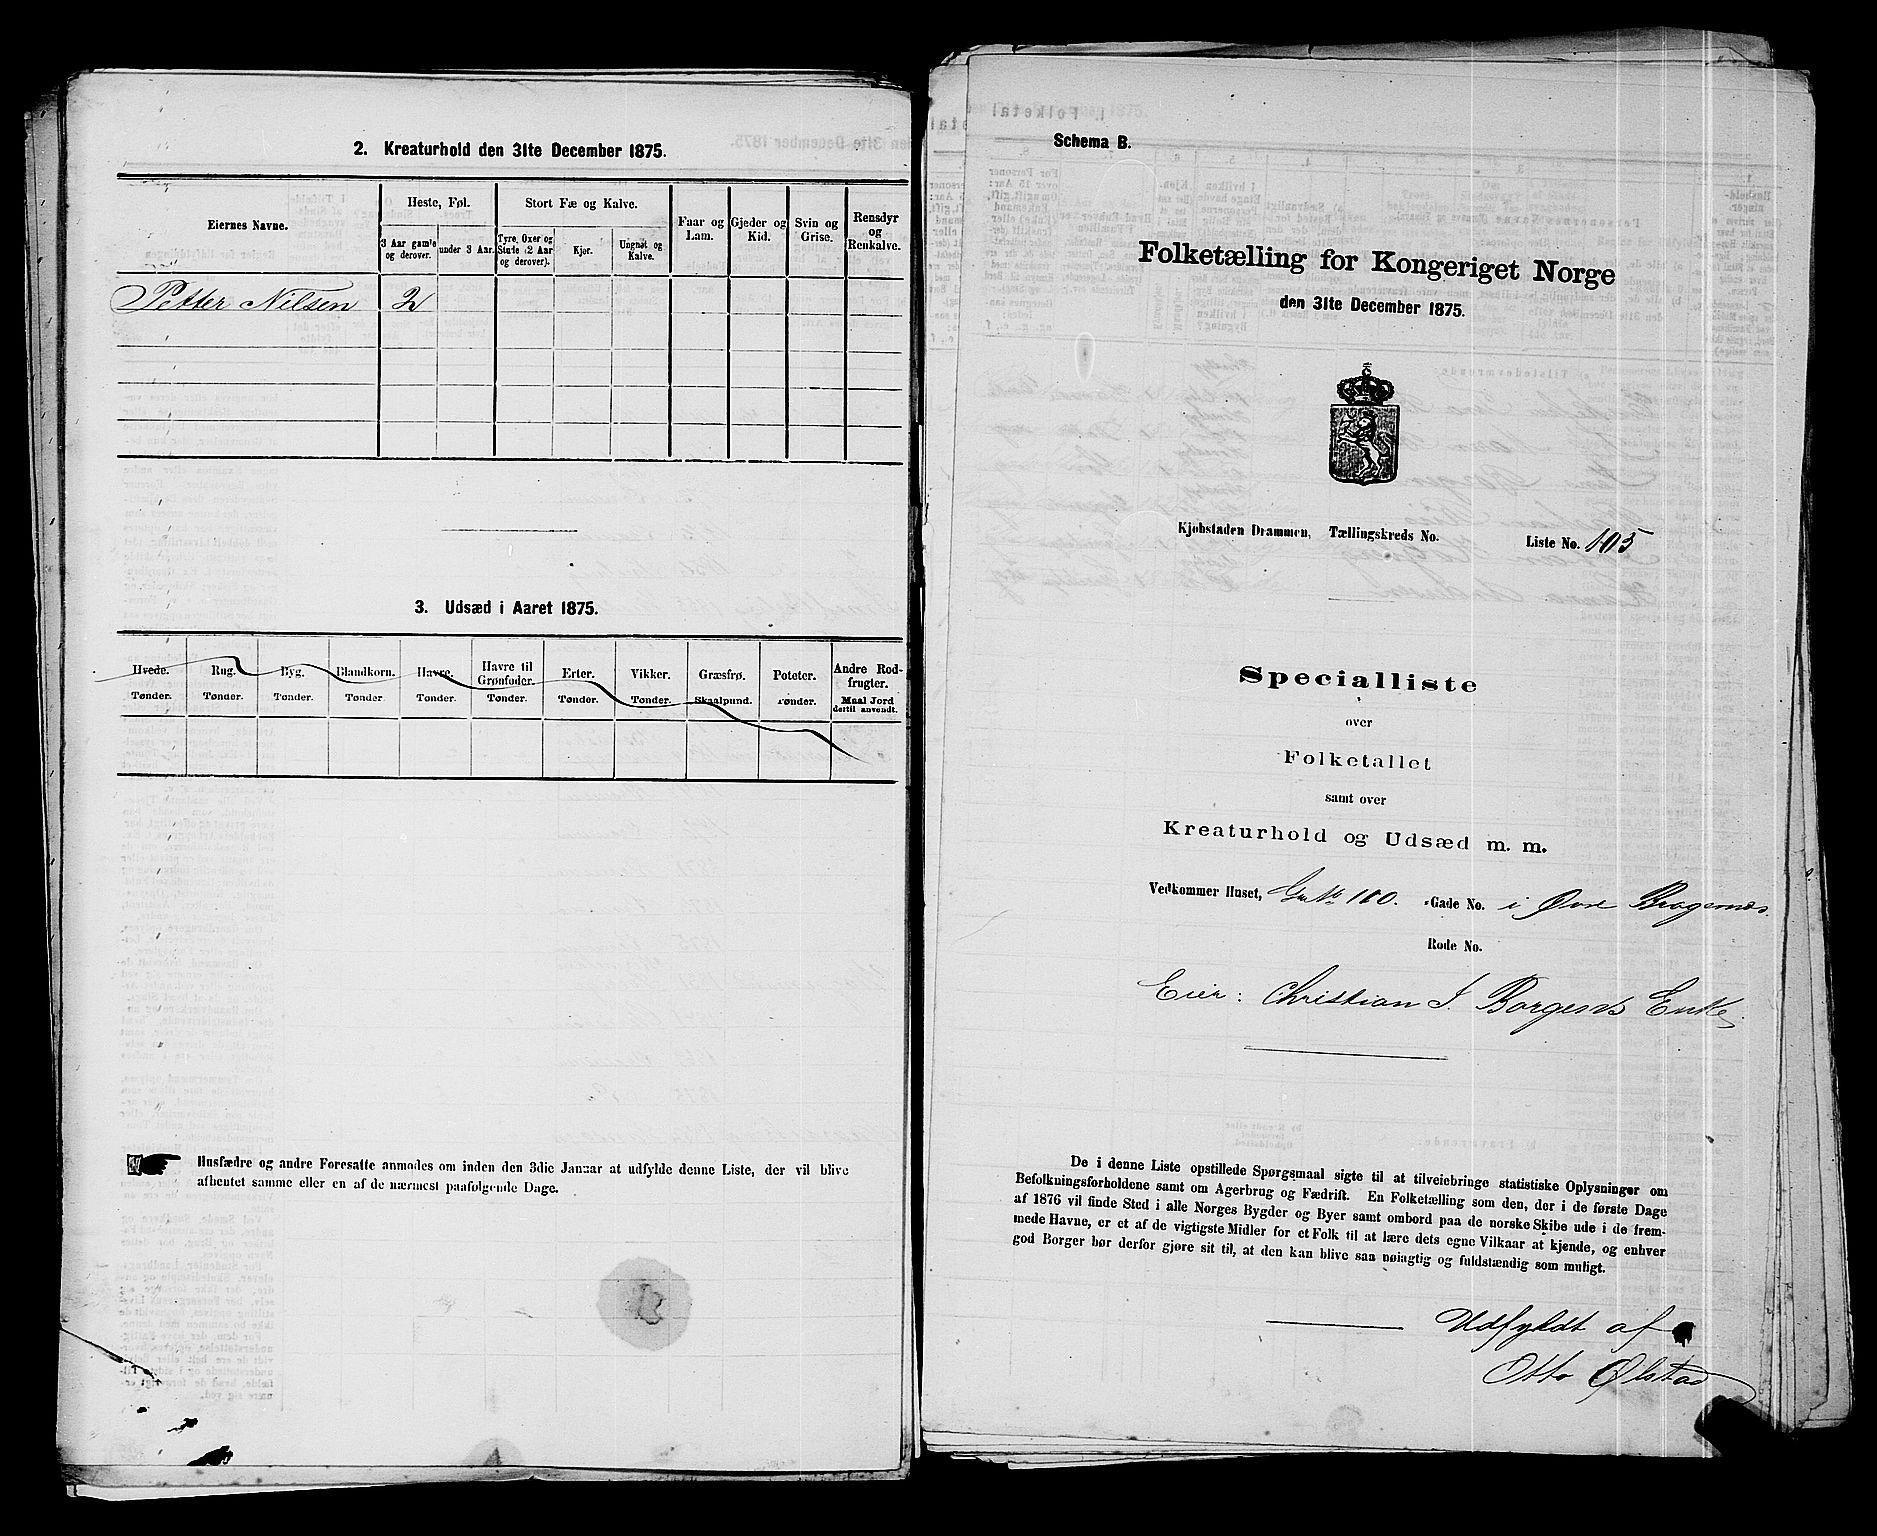 2. Kreaturhold den 31te December 1875.
Eiernes Navne.
Heste, Føl.
Stort Fæ og Kalve.
Faar og Lam.
Gjeder og Kid.
Svin og Grise.
Rensdyr og Renkalve.
3 Aar gamle og derover.
under 3 Aar.
Tyre, Oxer og Stude (2 Aar og derover).
Kjør.
Ungnøt og Kalve.
Petter Nilsen 2
3. Udsæd i Aaret 1875.
Hvede. Rug. Byg. Blandkorn. Havre. Havre til Grønfoder. Erter. Vikker. Græsfrø. Poteter. Andre Rodfrugter.
Tønder. Tønder. Tønder. Tønder. Tønder. Tønder. Tønder. Tønder. Skaalpund. Tønder. Maal Jord dertil anvendt.
Husfædre og andre Foresatte anmodes om inden den 3die Januar at udfylde denne Liste, der vil blive
afhentet samme eller en af de nærmest paafølgende Dage.
Schema B.
Folketælling for Kongeriget Norge
den 31te December 1875.
Kjøbstaden Drammen, Tællingskreds No. Liste No. 105
Specialliste
over
Folketallet
samt over
Kreaturhold og Udsæd m. m.
Vedkommer Huset, Gr No 160. Gade No. i Øvre Bragernæs.
Rode No.
Eier: Christian J. Borgesens Enke.
De i denne Liste opstillede Spørgsmaal sigte til at tilveiebringe statistiske Oplysninger om
Befolkningsforholdene samt om Agerbrug og Fædrift. En Folketælling som den, der i de første Dage
af 1876 vil finde Sted i alle Norges Bygder og Byer samt ombord paa de norske Skibe ude i de frem-
mede Havne, er et af de vigtigste Midler for et Folk til at lære dets egne Vilkaar at kjende, og enhver
god Borger bør derfor gjøre sit til, at den kan blive saa nøiagtig og fuldstændig som muligt.
Udfyldt af
Otto Ølstad